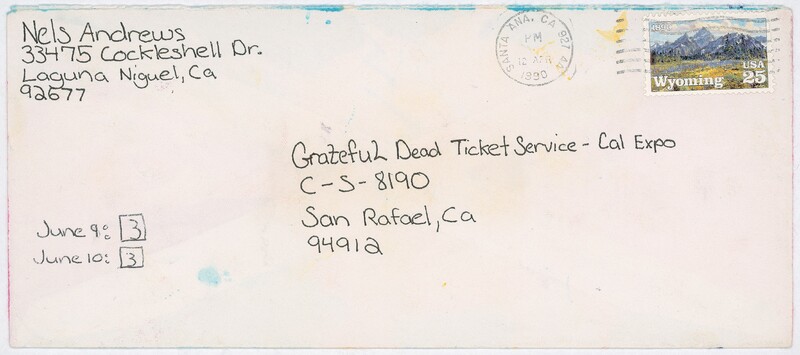 Nels Andrews
33475 Cockleshell Dr.
Laguna Niguel, Ca
92677
SANTA ANA, CA 927
PM
12 APR
1990
Wyoming
USA
25
Grateful Dead Ticket Service - Cal Expo
C-S-8190
San Rafael, Ca
94912
June 9: 3
June 10: 3